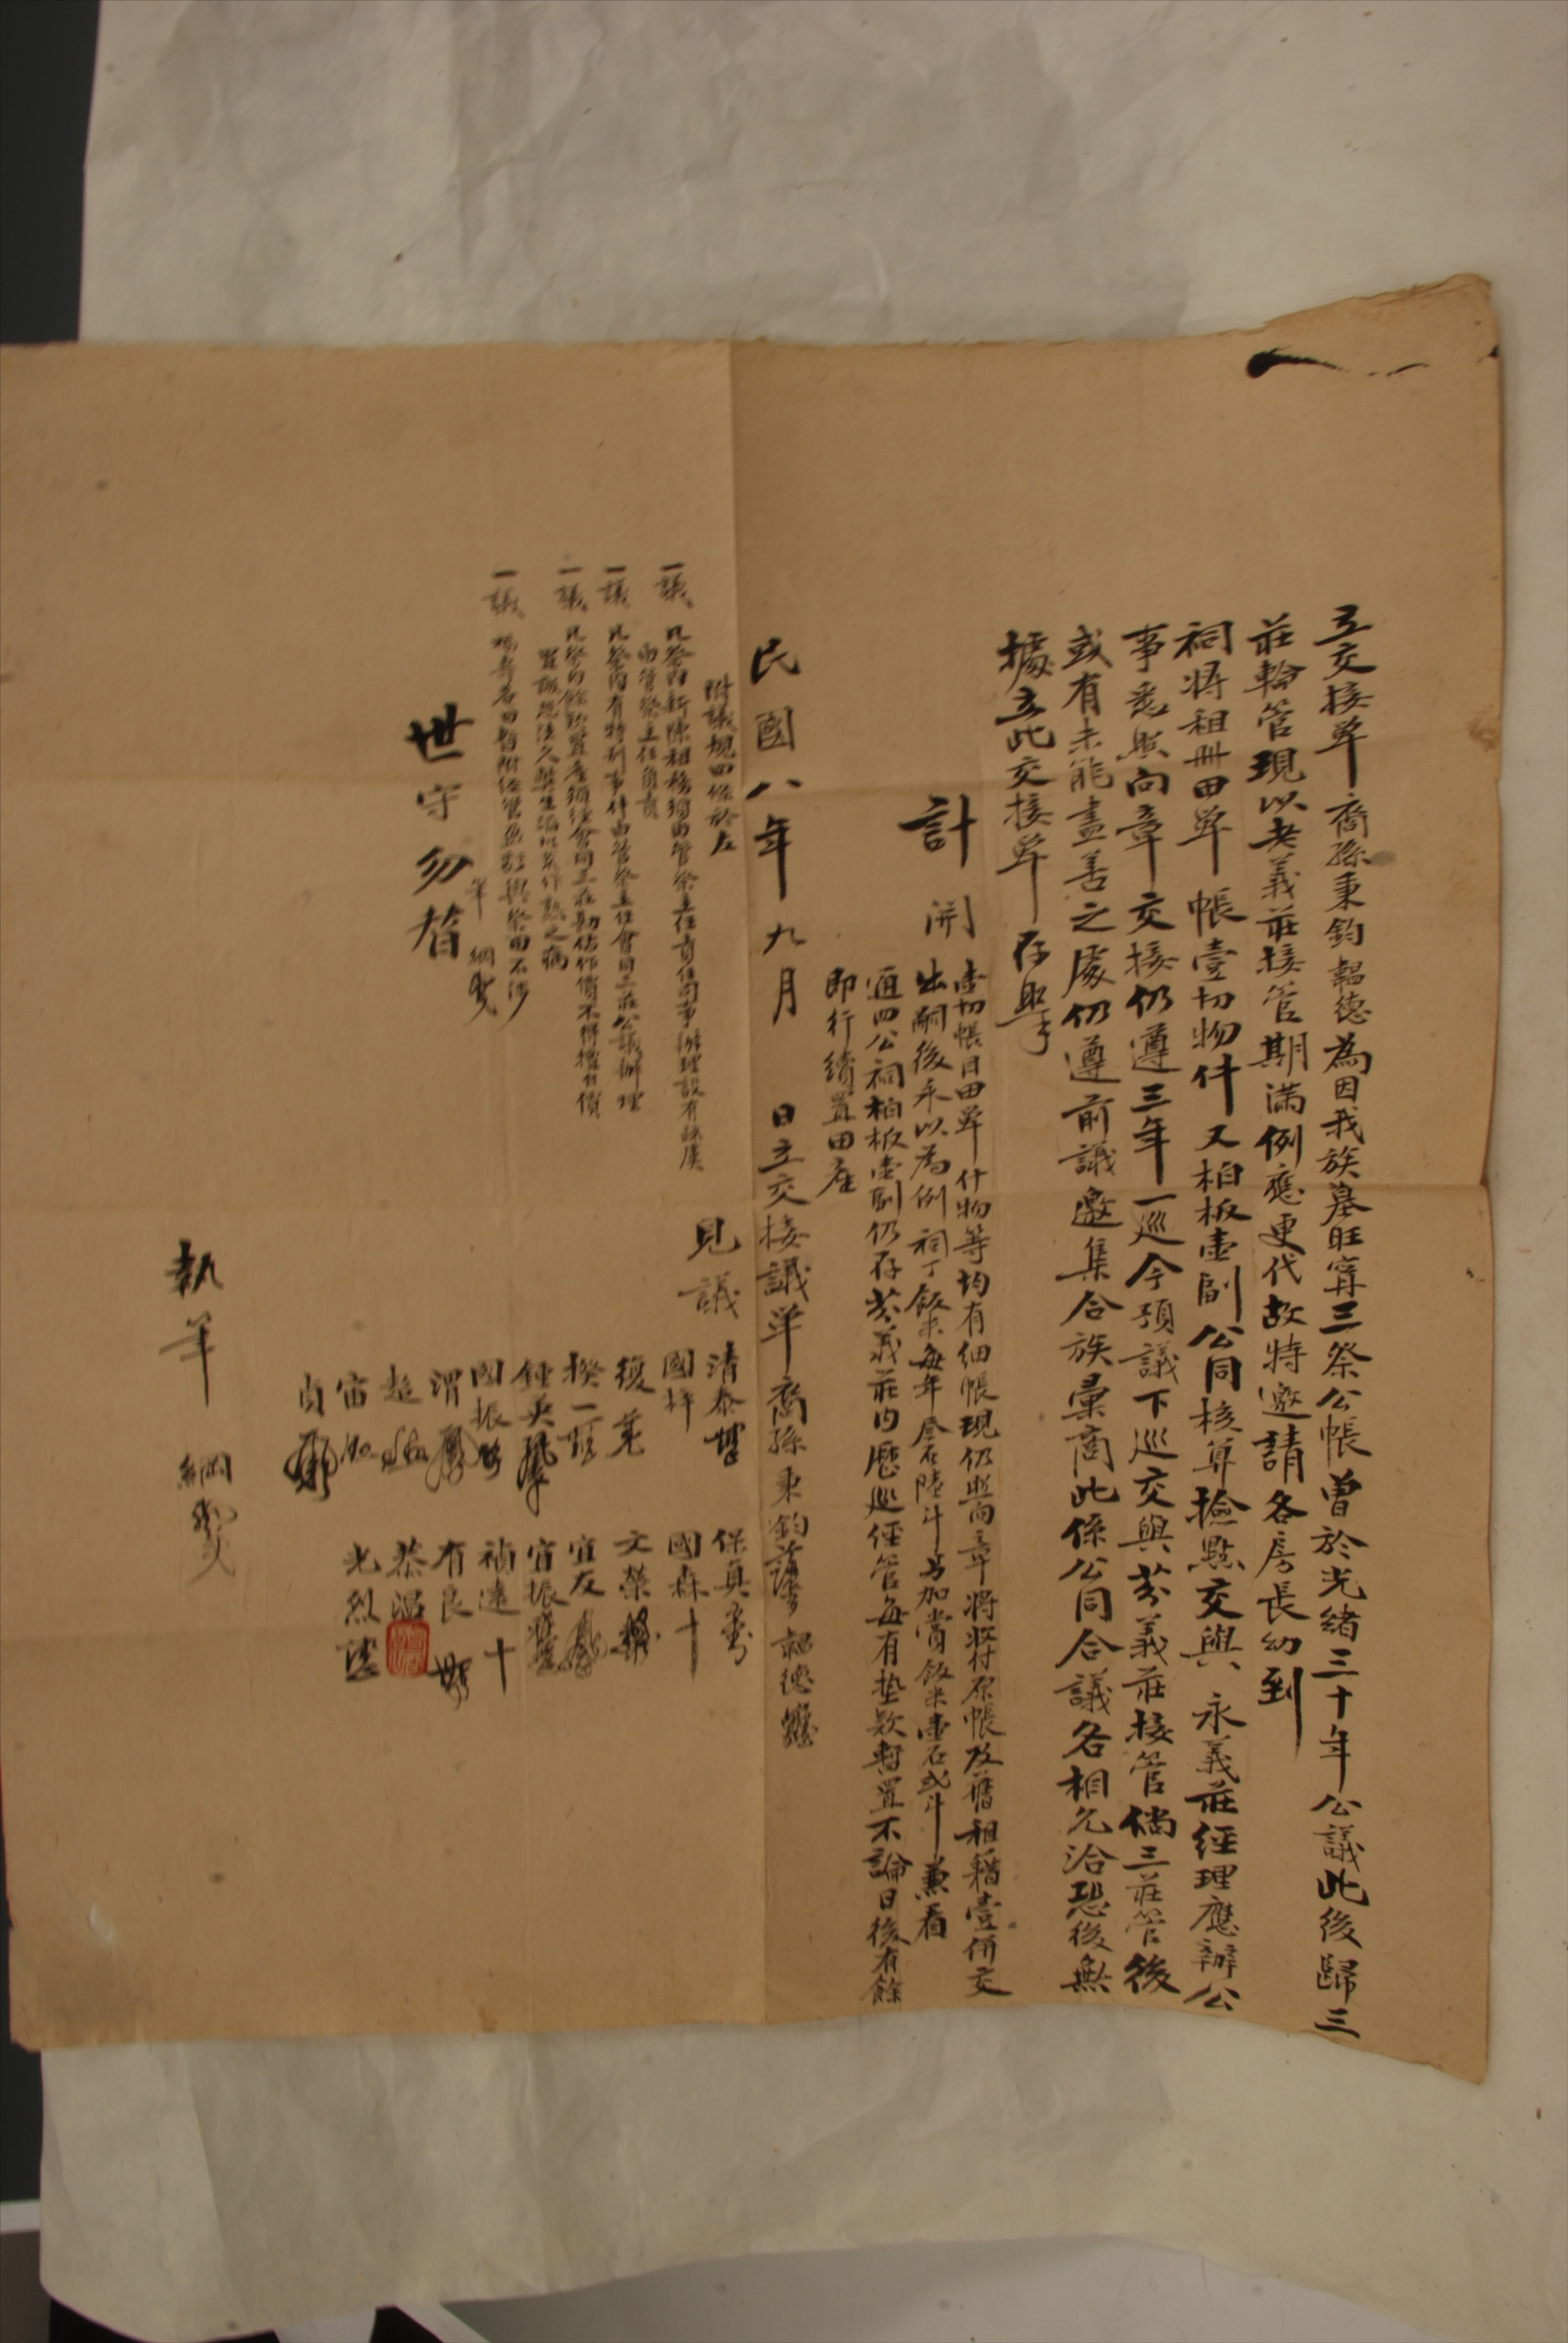 立交接单裔孫秉鈞韶德為因我族墓旺寗三祭公帳曾於光緒三十年公議此後歸三
莊輪管現以老義莊接管期滿例應更代故特邀請各房長幼到
祠將租冊田单帳壹切物件又柏板壹副公同核算撿點交與永義莊經理應辦公
事悉照向章交接仍遵三年一巡今預議下巡交與芬義莊接管倘三莊管後
或有未能盡善之處仍遵前議邀集合族彙商此係公同合議各相允洽恐後無
據立此交接单存照
計開
壹切帳目田单什物等均有細帳現仍照向章將收付原帳及舊租籍壹併交
出嗣後永以為例祠丁飯米每年叁石陸斗另加賞飯米壹石弍斗兼看
通四公祠柏板壹副仍存芬義莊內歷巡經管每有墊欵暫置不論日後有餘
即行續置田産
民國八年九月 日立交接議单裔孫秉鈞 韶德
附議規四條於左
一議 凡祭內新陳租務須由管祭主任責任司事辦理設有疎虞
由管祭主任負責
一議 凡祭內有特別事件由管祭主任會同三莊公議辦理
一議 凡祭內餘款置產須經會同三莊勘估作價不得擅自價
置誠恐法久弊生
一議 田暫附經管與祭田不涉
筆 綱
世守勿替
見議
清泰 保真
國梓 國森 十
復 文榮
揆一 宜友
鍾英 宜振
國振 禎遠 十
渭 有良
超 恭
宙 光烈
貞
執筆 綱